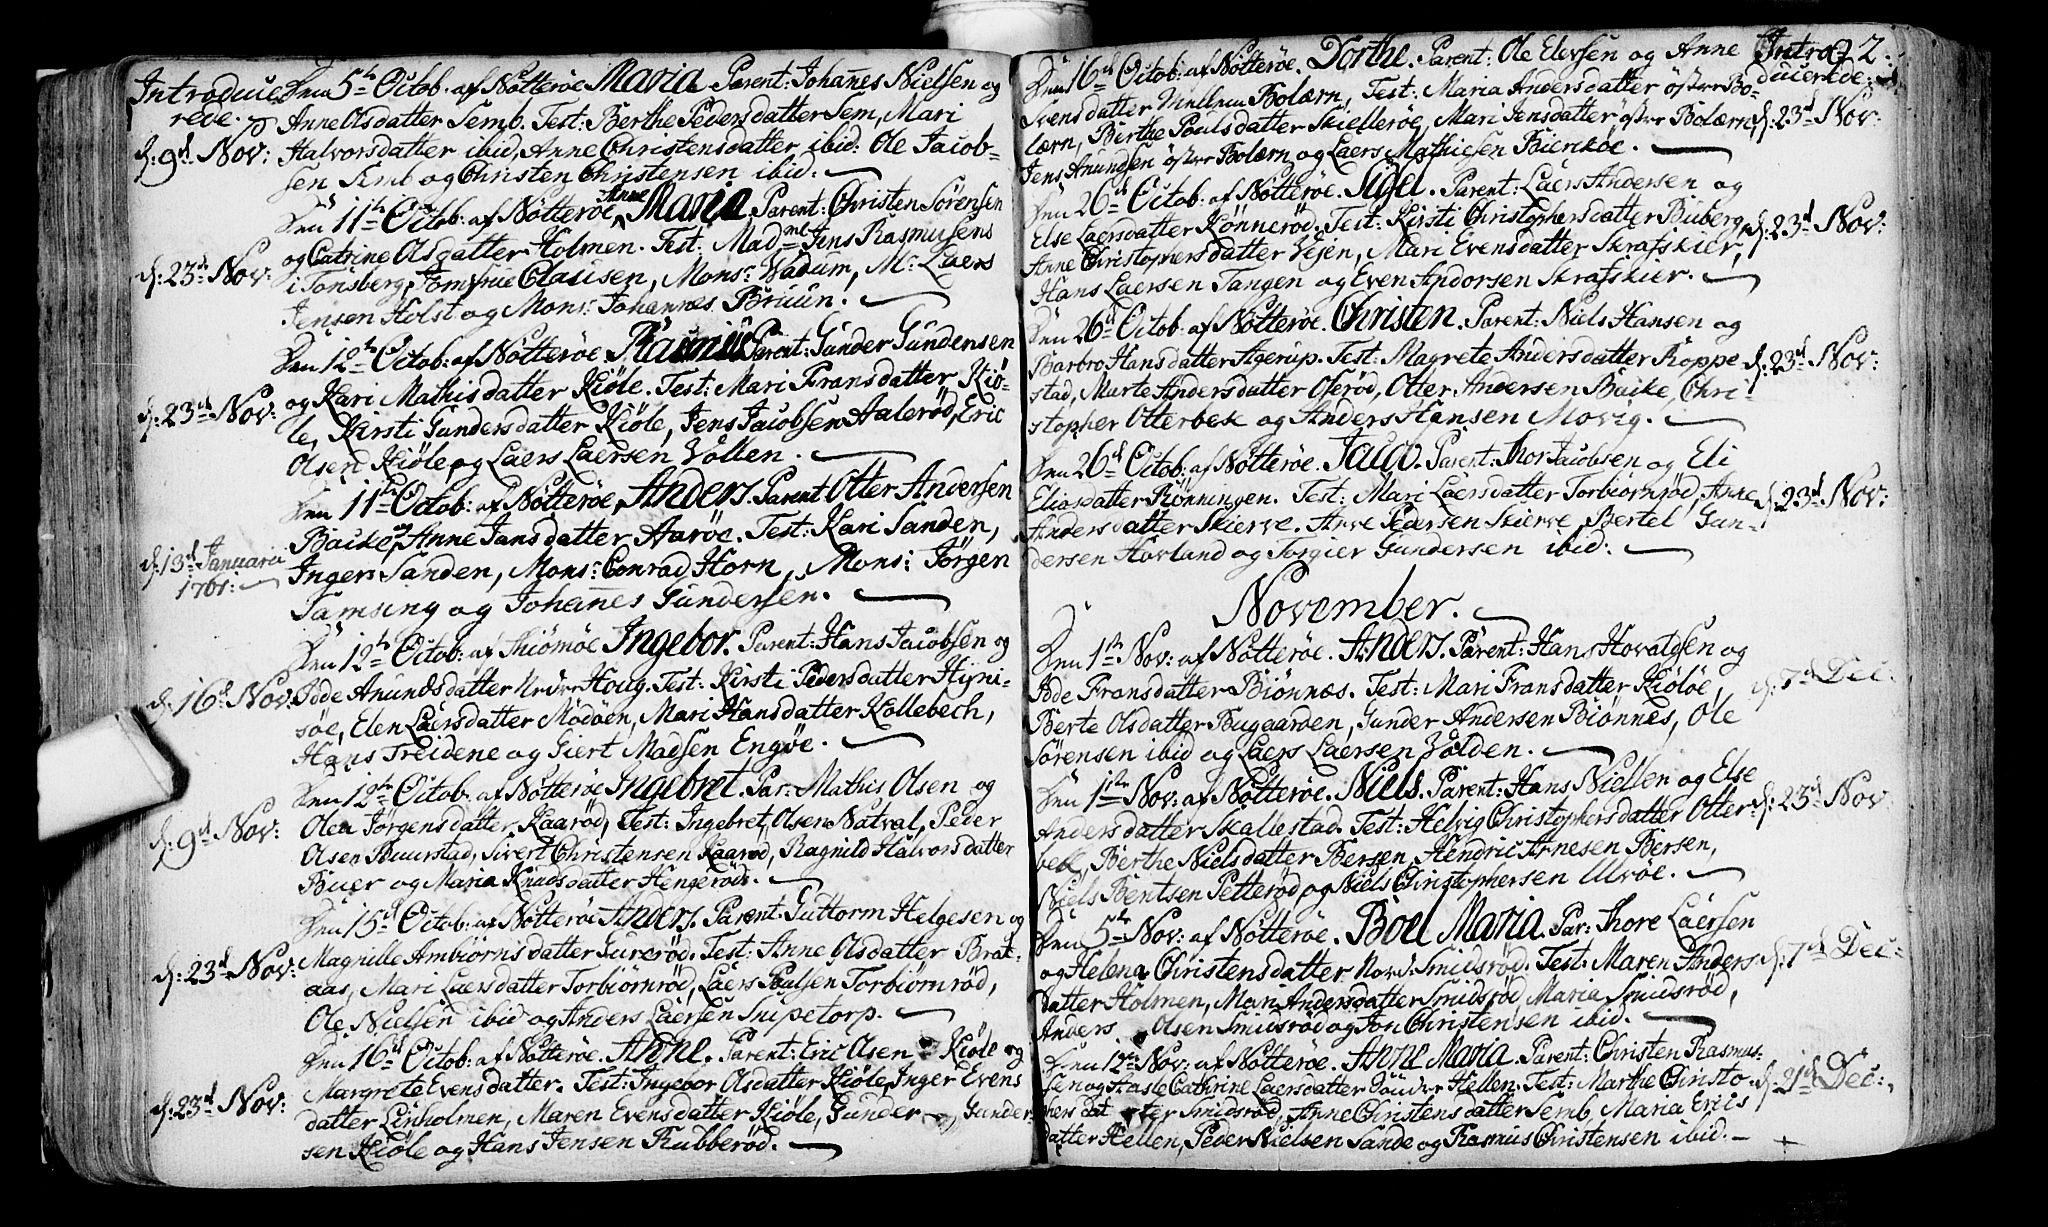 Introduce-
rede.
Den 5th Octob: af Nötteröe Maria. Parent: Johañes Nielsen og
Anne Olsdatter Semb. Test: Berthe Pedersdatter Sem, Mari
d: 9d Nov: Halvorsdatter ibid, Anne Christensdatter ibid: Ole Jacob=
sen Semb og Christen Christensen ibid.
Den 11th Octob: af Nötteröe Anne Maria. Parent: Christen Sörensen
og Catrine Olsdatter Holmen. Test: Madme Jens Rasmusens
d: 23d Nov: i Tönsberg, Jomfrue Clausen, Monsr Wadum, Mr Laers
Jensen Holst og Monsr Johannes Bruun.
Den 12th Octob: af Nötteröe Rasmus. Parent: Gunder Gundersen
og Kari Mathisdatter Kiöle. Test: Mari Fransdatter Kiö-
d: 23d Nov: le, Kirsti Gundersdatter Kiöle, Jens Jacobsen Aaleröd, Eric
Olsen Kiöle og Laers Laersen Volten.
Den 11th Octob: af Nötteröe, Anders. Parent Otter Andersen
Backe og Anne Jansdatter Aaröe. Test: Kari Sanden,
d: 13d Januarii Inger Sanden, Mons: Conrad Horn, Mons: Jörgen
1761: Samsing og Johañes Gundersen.
Den 12th Octob: af Thiömöe Ingebor. Parent: Hans Jacobsen og
d: 16d Nov: Jode Anundsdatter Nedre Houg. Test: Kirsti Pedersdatter Hyni-
söe, Elen Laersdatter Mödöen, Mari Hansdatter Kollebech,
Hans Treidene og Siert Madsen Engöe.
Den 12th Octob: af Nötteröe Ingebret. Par: Mathis Olsen og
d: 9d Nov: Olea Jörgensdatter Kaaröd, Test: Ingebret Olsen Natval, Peder
Olsen Buerstad, Sivert Christensen Kaaröd, Ragnild Halvorsdatter
Buer og Maria Knudsdatter Hengeröd.
Den 15d Octob: af Nötteröe Anders. Parent: Guttorm Helgesen og
d: 23d Nov: Magnille Ambiörnsdatter Gureröd. Test: Anne Olsdatter Brat-
aas, Mari Laersdatter Torbiörnröd, Laers Poulsen Torbiörnröd,
Ole Nielsen ibid og Anders Laersen Snipetorp.
Den 16d Octob: af Nötteröe. Anne. Parent: Eric Olsen Kiöle og
d: 23d Nov: Margrete Evensdatter. Test: Ingebor Olsdatter Kiöle, Inger Evens
datter Linholmen, Maren Evensdatter Kiöle, Gunder Gunder-
sen Kiöle og Hans Jensen Rubberöd.
Den 16d Octob: af Nötteröe. Dorthe. Parent: Ole Elevsen og Anne Intro- 2:
Svensdatter Mellem Bolærn, Test: Maria Andersdatter öster Bo- ducerede:
lærn, Berthe Poulsdatter Skielleröe, Mari Jensdatter öster Bolærn, d: 23d Nov:
Jens Anundsen öster Bolærn og Laers Mathiesen Bierköe.
Den 26d Octob: af Nötteröe. Sigel. Parent: Laers Andersen og
Else Laersdatter Rönneröd. Test: Kirsti Christophersdatter Buberg, d: 23d Nov:
Anne Christophersdatter Vejen, Mari Evensdatter Skrafskier,
Hans Laersen Tangen og Even Andorsen Skrafskier.
Den 26d Octob: af Nötteröe. Christen. Parent: Niels Hansen og
Barbro Hansdatter Agerup. Test: Magrete Andersdatter Roppe d: 23d Nov:
stad, Marte Andersdatter Oseröd, Otter Andersen Backe, Chri-
stopher Otterbek og Anders Hansen Movig.
Den 26d Octob: af Nötteröe. Jaco. Parent: Thor Jacobsen og Eli
Eliasdatter Rönningen. Test: Mari Laersdatter Torbiörnröd, Anne d: 23d Nov:
Andersdatter Skierve. Arve Pedersen Skierve, Bertel Gun-
dersen Hovland og Torgier Gundersen ibid:
November.
Den 1th Nov: af Nötteröe. Anders. Parent: Hans Hovaldsen og
Jode Fransdatter Biönnæs. Test: Mari Fransdatter Kiölöe, d: 7d Dec:
Berte Olsdatter Bugaarden, Gunder Andersen Biönnes, Ole
Sörensen ibid og Laers Laersen Volden.
Den 1th Nov: af Nötteröe. Niels. Parent: Hans Nielsen og Else
Andersdatter Skallestad. Test: Helvig Christophersdatter Otter- d: 23d Nov:
bek, Berthe Nielsdatter Bersen, Hendric Arnesen Bersen,
Niels Bentsen Petteröd og Niels Christophersen Ulvöe.
Den 5th Nov: af Nötteröe. Boel Maria. Par: Thore Laersen
og Helena Christensdatter Nord: Smidsröd. Test: Maren Anders d: 7d Dec:
datter Holmen, Mari Andersdatter Smidsröd, Maria Smidsröd,
Anders Olsen Smidsröd og Jon Christensen ibid.
Den 12th Nov: af Nötteröe. Anne Maria. Parent: Christen Rasmus-
sen og Hasle Cathrine Laersdatter Söndre Hellen. Test: Marthe Christo d: 21d Dec:
phersdatter Smidsröd, Anne Christensdatter Semb, Maria Erics
datter Hellen, Peder Nielsen Sande og Rasmus Christensen ibid.